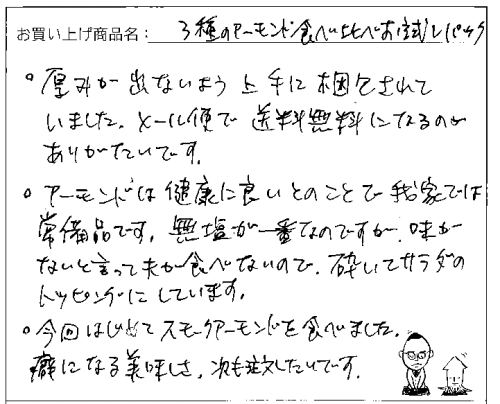 お買い上げ商品名: 3種のアーモンド食べ比べお試しパック
。厚みが出ないよう上手に梱包されて
いました。メール便で送料無料になるのが
ありがたいです。
。アーモンドは健康に良いとのことで我家では
常備品です。無塩が一番なのですが、味が
ないと言って夫が食べないので、砕いてサラダの
トッピングにしています。
。今回はじめてスモークアーモンドを食べました。
癖になる美味しさ。次も注文したいです。